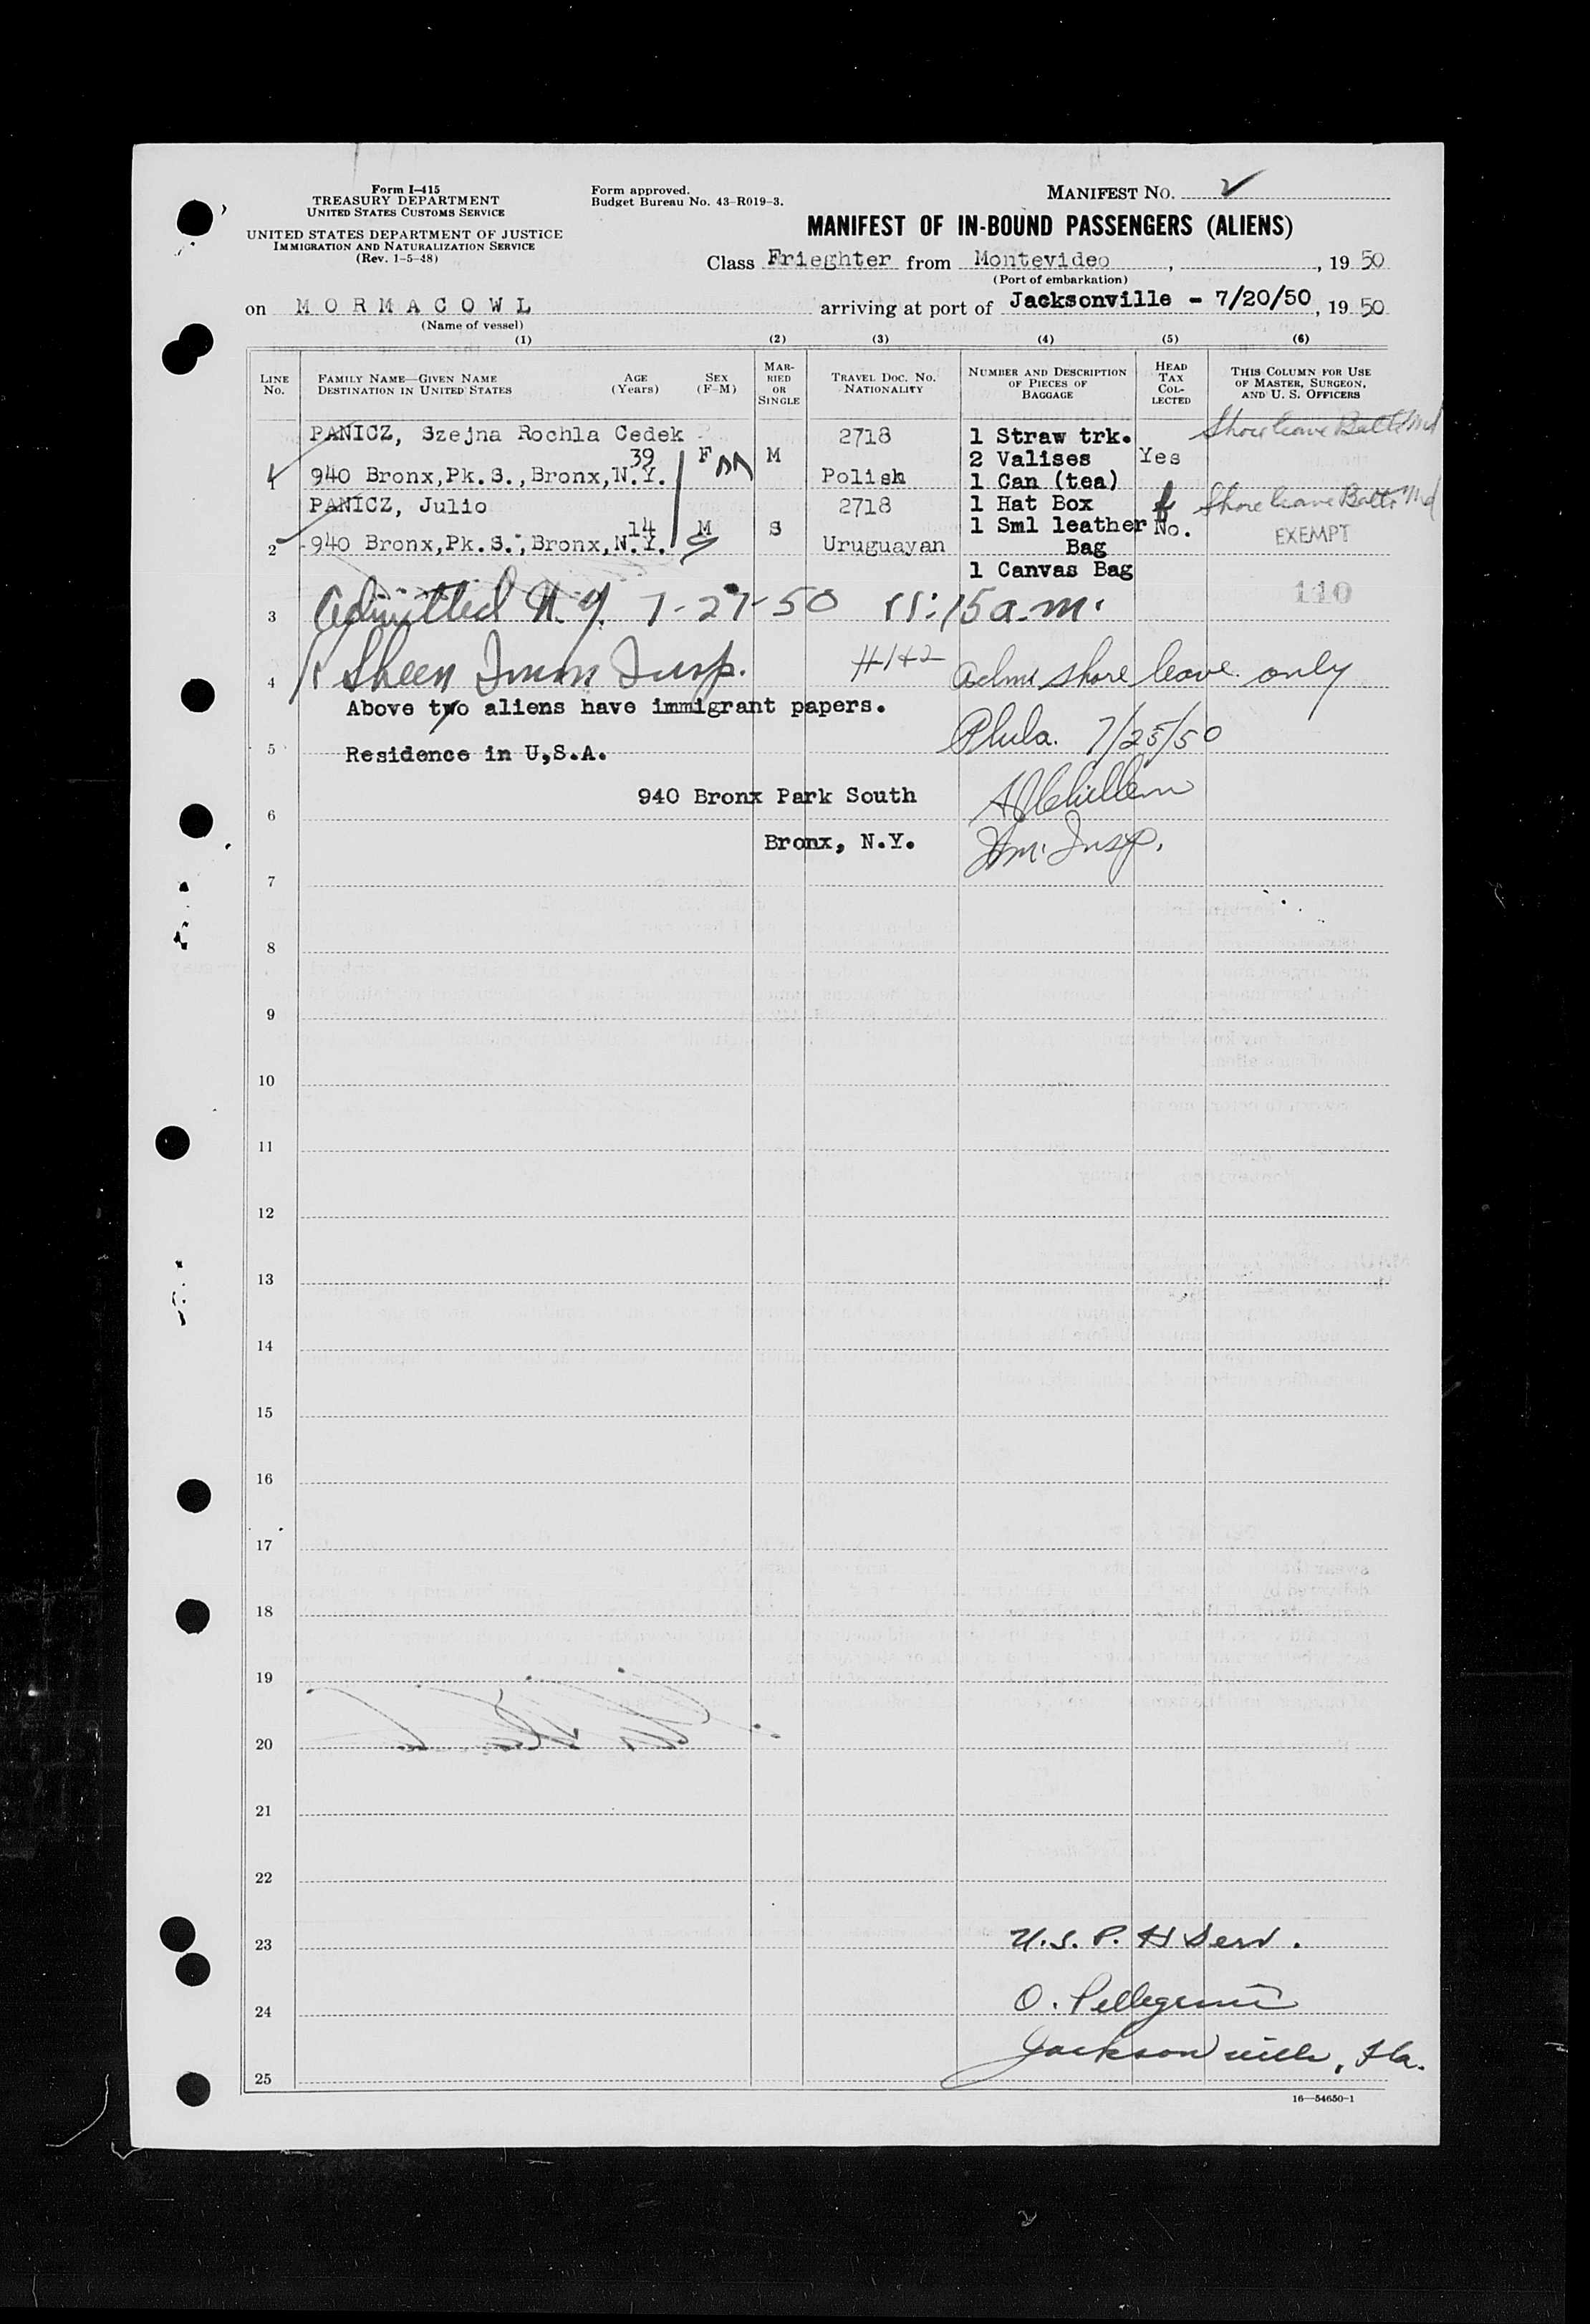 Form I-415
TREASURY DEPARTMENT
UNITED STATES CUSTOMS SERVICE
UNITED STATES DEPARTMENT OF JUSTICE
IMMIGRATION AND NATURALIZATION SERVICE
(Rev. 1-5-48)
Form approved.
Budget Bureau No. 43-R019-3.
MANIFEST NO.
MANIFEST OF IN-BOUND PASSENGERS (ALIENS)
Class Frieghter from Montevideo , , 19 50
(Port of embarkation)
on M O R M A C O W L arriving at port of Jacksonville - 7/20/50, 19 50
(Name of vessel)
(1) (2) (3) (4) (5) (6)
LINE NO.
FAMILY NAME—GIVEN NAME
DESTINATION IN UNITED STATES
AGE (Years)
SEX (F-M)
MARRIED OR SINGLE
TRAVEL DOC. NO.
NATIONALITY
NUMBER AND DESCRIPTION OF PIECES OF BAGGAGE
HEAD TAX COLLECTED
THIS COLUMN FOR USE OF MASTER, SURGEON, AND U. S. OFFICERS
PANICZ, Szejna Rochla Cedek 2718 1 Straw trk. Shore leave Balto Md
39 F M 2 Valises Yes
1 940 Bronx,Pk.S.,Bronx,N.Y. Polish 1 Can (tea)
PANICZ, Julio 2718 1 Hat Box Shore leave Balto Md
14 M S 1 Sml leather No. EXEMPT
2 940 Bronx,Pk.S.,Bronx,N.Y. Uruguayan Bag
1 Canvas Bag
110
3 Admitted N.Y. 7-27-50 11:15 a.m.
4 Sheen Imm Insp. #1+2 Adm. shore leave only
Above two aliens have immigrant papers.
Phila. 7/25/50
5 Residence in U,S.A.
940 Bronx Park South
6
Bronx, N.Y. Im. Insp.
7
8
9
10
11
12
13
14
15
16
17
18
19
20
21
22
23 U.S.P.H Serv.
24 O. Pellegrini
Jacksonville, Fla.
25
16—54650-1